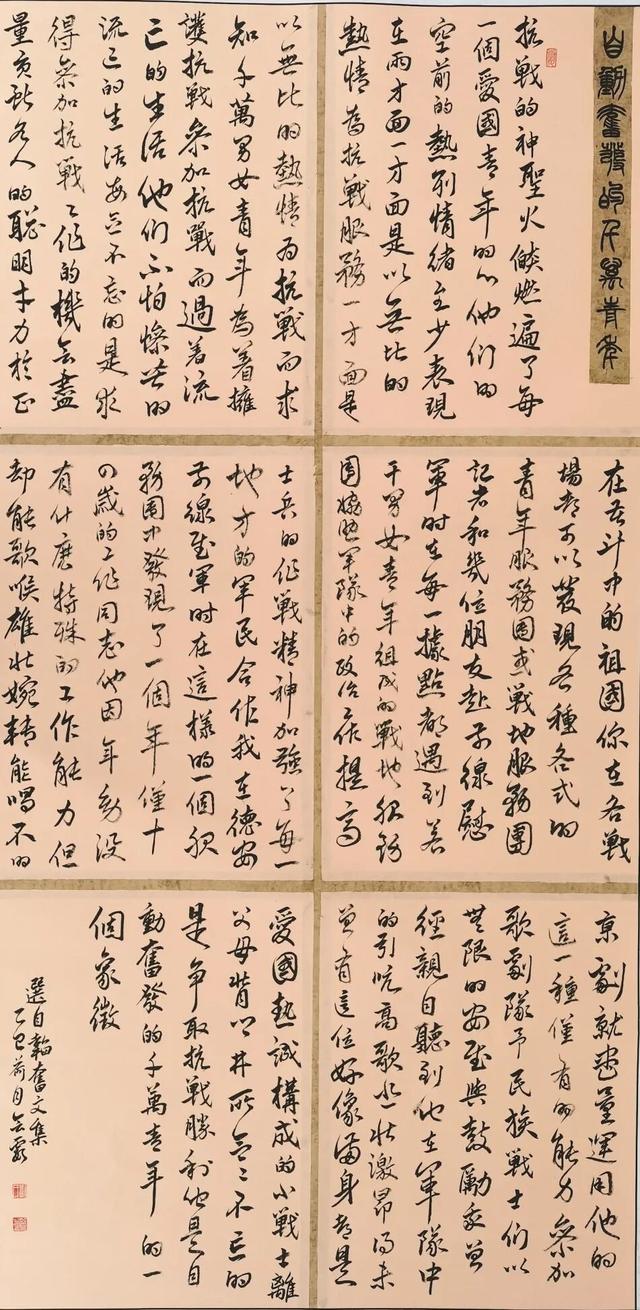 自動奮發的千萬青年
抗戰的神聖火燄燃遍了每
一個愛國青年的心他們的
空前的熱烈情緒至少表現
在兩方面一方面是以無比的
熱情為抗戰服務一方面是
以無比的熱情為抗戰而求
知千萬男女青年為着擁
護抗戰參加抗戰而過着流
亡的生活他們不怕慘苦的
流亡的生活每念不忘的是求
得參加抗戰工作的機會盡
量貢獻各人的聰明才力於正
在苦斗中的祖國你在各戰
場都可以發現各種各式的
青年服務團或戰地服務團
記者和幾位朋友赴前線慰
軍時在每一據點都遇到若
干男女青年組成的戰地服務
團協助軍隊中的政治工作提高
士兵的作戰精神加強了每一
地方的軍民合作我在德安
前線慰軍時在這樣的一個服
務團中發現了一個年僅十
四歲的工作同志他因年幼沒
有什麽特殊的工作能力但
却能歌喉雄壯婉轉能唱不的
京劇就盡量運用他的
這一種僅有的能力參加
歌劇隊予民族戰士們以
無限的安慰與鼓勵我曾
經親自聽到他在軍隊中
的引吭高歌悲壯激昂得未
曾有這位好像滿身都是
愛國熱誠構成的小戰士離
父母背鄉井所念念不忘的
是爭取抗戰勝利他是自
動奮發的千萬青年的一
個象徵
選自韜奮文集
乙巳荷月